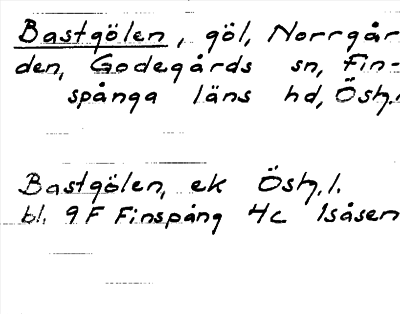 Bastgölen, göl, Norrgår
den, Godegårds sn, Fin-
spånga läns hd, Östg.
Bastgölen, ek Östg. l.
bl. 9F Finspång 4c Isåsen